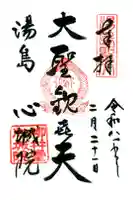 奉拝
令和八年
二月二十一日
大聖歓喜天
湯島
心城院